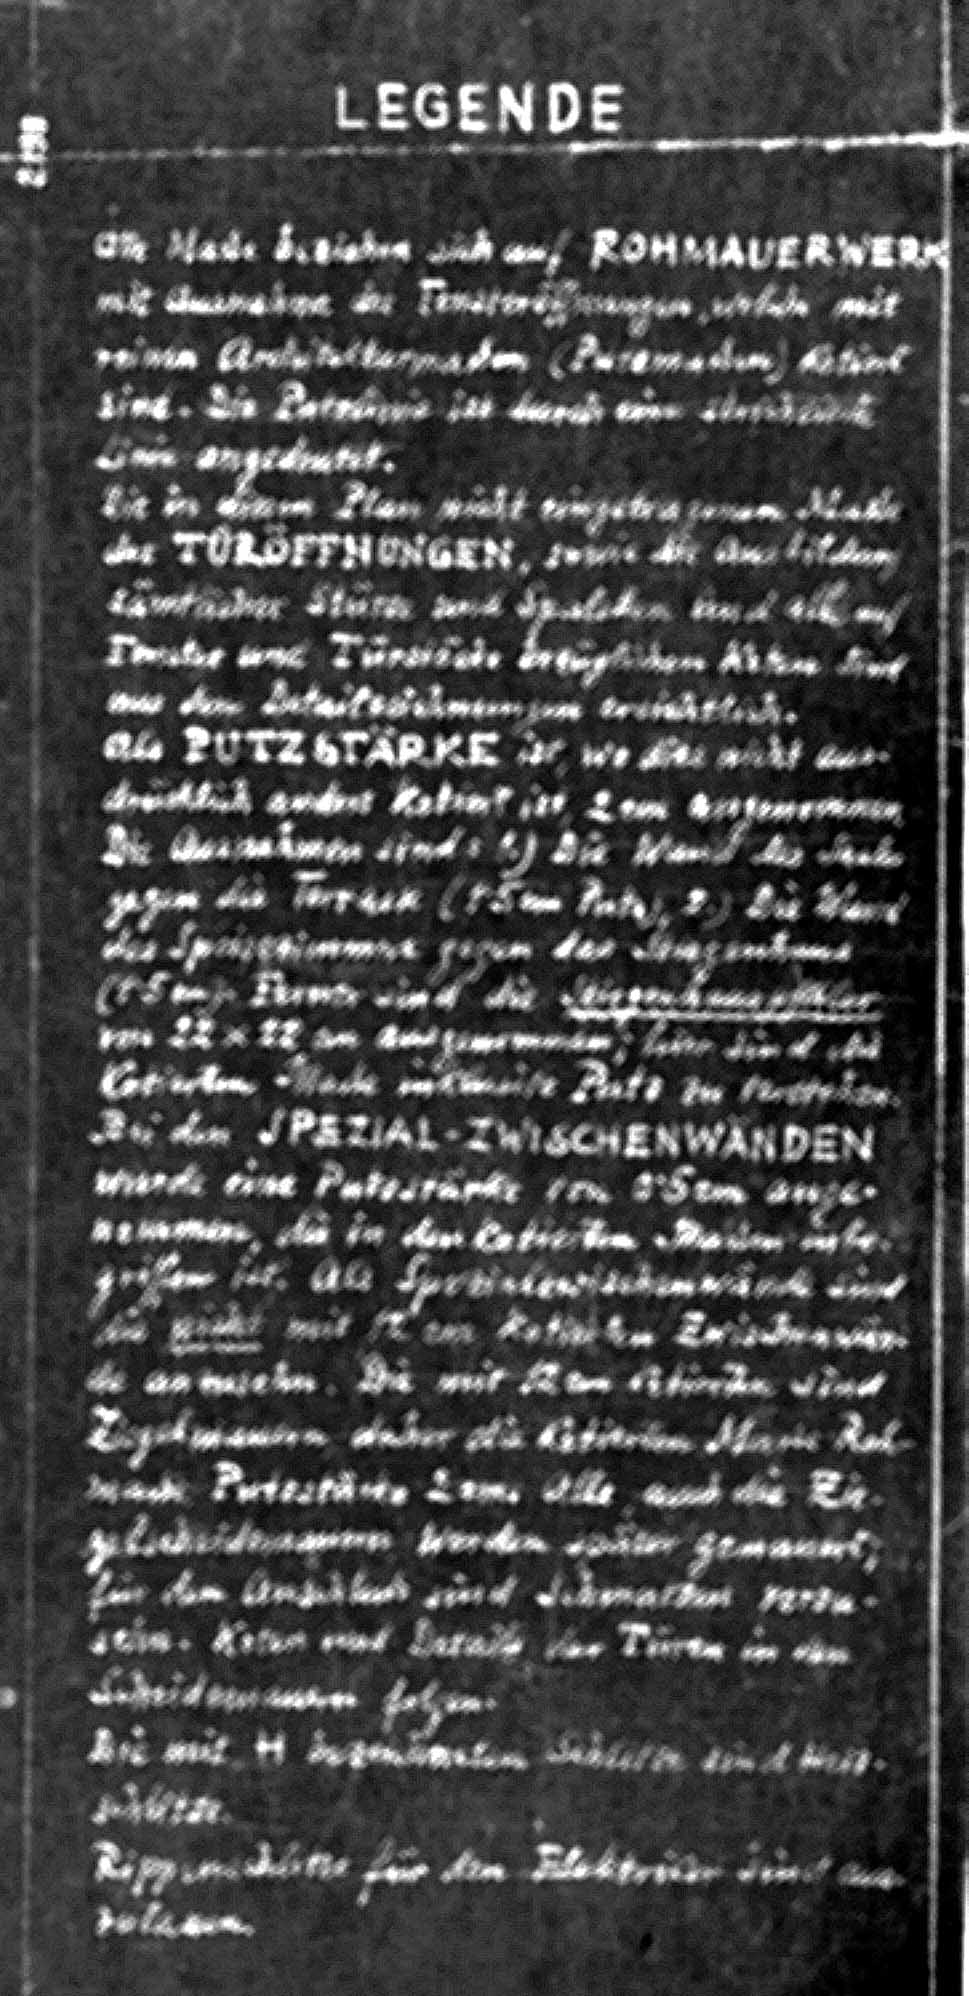 LEGENDE
2.198
Alle Maße beziehen sich auf ROHMAUERWERK
mit Ausnahme der Fensteröffnungen, welche mit
reinen Architekturmaßen (Putzmaßen) kotiert
sind. Die Putzlinie ist durch eine
Linie angedeutet.
Die in diesem Plan nicht eingetragenen Maße
der TÜRÖFFNUNGEN, sowie die Ausbildung
sämtlicher Stürze und und alle auf
Fenster und Türstöcke bezüglichen Koten sind
aus den Detailzeichnungen ersichtlich.
Als PUTZSTÄRKE ist, wo dies nicht aus-
drücklich anders kotiert ist, 2 cm angenommen.
Die Ausnahmen sind: 1.) Die Wand des Saales
gegen die Terrasse (1·5 cm Putz), 2.) Die Wand
des Speisezimmers gegen das Stiegenhaus
(1·5 cm). Ferner sind die Stiegenhauspfeiler
von 22 x 22 cm ausgenommen; hier sind die
kotierten Maße inklusive Putz zu verstehen.
Bei den SPEZIAL-ZWISCHENWÄNDEN
wurde eine Putzstärke von 0·5 cm ange-
nommen, die in den kotierten Maßen inbe-
griffen ist. Als Spezialzwischenwände sind
die nicht mit 12 cm kotierten Zwischenwän-
de anzusehn. Die mit 12 cm kotierten sind
Ziegelmauern, daher die kotierten Maße Roh-
maße. Putzstärke 2 cm. Alle, auch die Zie-
gelscheidemauern werden später gemauert;
für den Anschluß sind Schmatzen vorzu-
sehn. Koten und Details der Türen in den
Scheidemauern folgen.
Die mit H bezeichneten Schlitze sind Heiz-
schlitze.
schlitze für den Elektriker sind